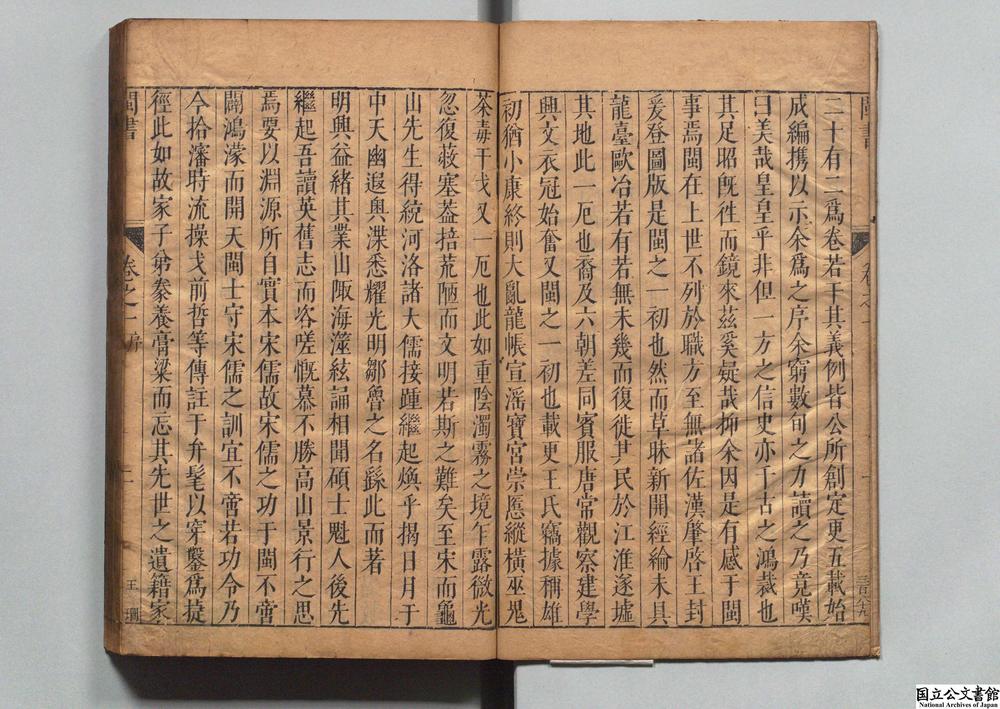 二十有二爲卷若干其義例皆公所創定更五載始
成編携以示余爲之序余窮數旬之力讀之乃竟嘆
曰美哉皇皇乎非但一方之信史亦千古之鴻裁也
其足昭旣徃而鏡來茲奚疑哉抑余因是有感于閩
事焉閩在上世不列於職方至無諸佐漢肇啓王封
爰登圖版是閩之一初也然而草昧新開經綸未具
龍臺歐冶若有若無未幾而復徙其民於江淮遂墟
其地此一厄也裔及六朝差同賓服唐常觀察建學
興文衣冠始奮又閩之一初也載更王氏竊據稱雄
初猶小康終則大亂龍帳宣滛寶宮崇慝縱橫巫鬼
荼毒干戈又一厄也此如重陰濁霧之境乍露微光
忽復蔽塞葢掊荒陋而文明若斯之難矣至宋而龜
山先生得統河洛諸大儒接踵繼起煥乎揭日月于
中天幽遐輿渫悉耀光明鄒魯之名繇此而著
明興益緒其業山陬海澨絃誦相聞碩士魁人後先
繼起吾讀英舊志而咨嗟慨慕不勝高山景行之思
焉要以淵源所自實本宋儒故宋儒之功于閩不啻
闢鴻濛而開天閩士守宋儒之訓宜不啻若功令乃
今拾瀋時流操戈前哲等傳註于弁髦以穿鑿爲捷
徑此如故家子弟豢養膏粱而忘其先世之遺籍家
閩書
卷之一序
二
王珮
国立公文書館
National Archives of Japan